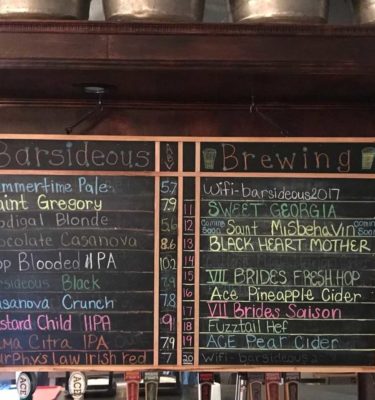 Barsideous
ABV
Brewing
mmertime Pale 5.7
aint Gregory 7.9
odigal Blonde 5.6
ocolate Casanova 8.6
op Blooded IIPA 10.2
rsideous Black 7.9
asanova Crunch 7.8
stard Child IIPA 9
ma Citra IPA 7.9
urphys Law Irish red 7
Wifi-barsideous2017
11 SWEET GEORGIA
12 Coming Soon Saint MisbehaVin Comin Soon
13 BLACK HEART MOTHER
14
15 VII BRIDES FRESH HOP
16 Ace Pineapple Cider
17 VII Brides Saison
18 Fuzztail Hef
19 ACE Pear Cider
20 Wifi-barsideous2
ACE
ACE